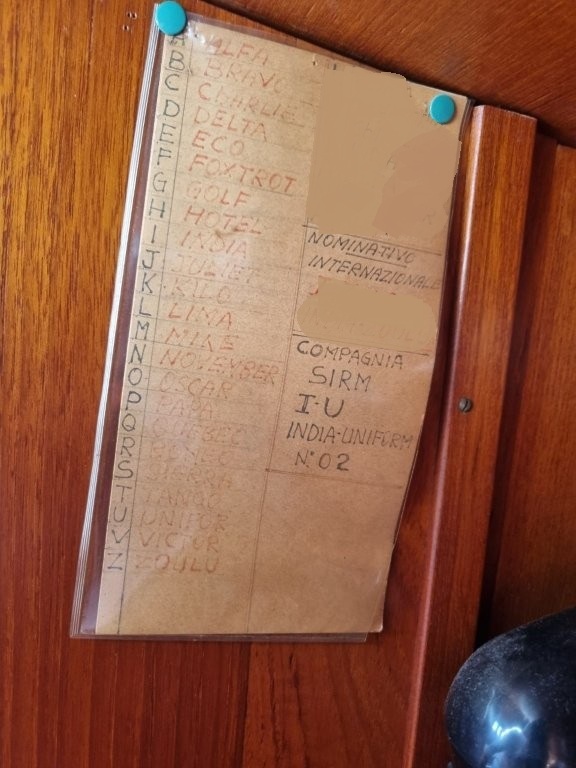 A ALFA
B BRAVO
C CHARLIE
D DELTA
E ECO
F FOXTROT
G GOLF
H HOTEL
I INDIA
J JULIET
K KILO
L LIMA
M MIKE
N NOVEMBER
O OSCAR
P PAPA
Q QUEBEC
R
S SIERRA
T TANGO
U UNIFOR
V VICTOR
Z ZOULU
NOMINATIVO
INTERNAZIONALE
COMPAGNIA
SIRM
I-U
INDIA-UNIFORM
N° 02